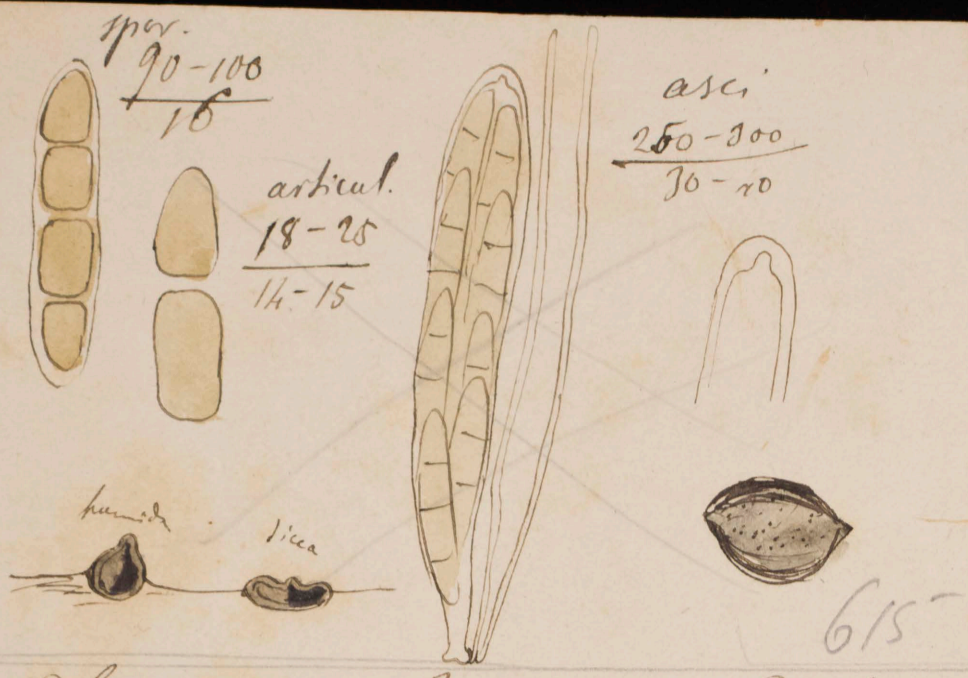 spor.
90-100
16
articul.
18-25
14-15
asci
250-300
30-40
humida
sicca
615